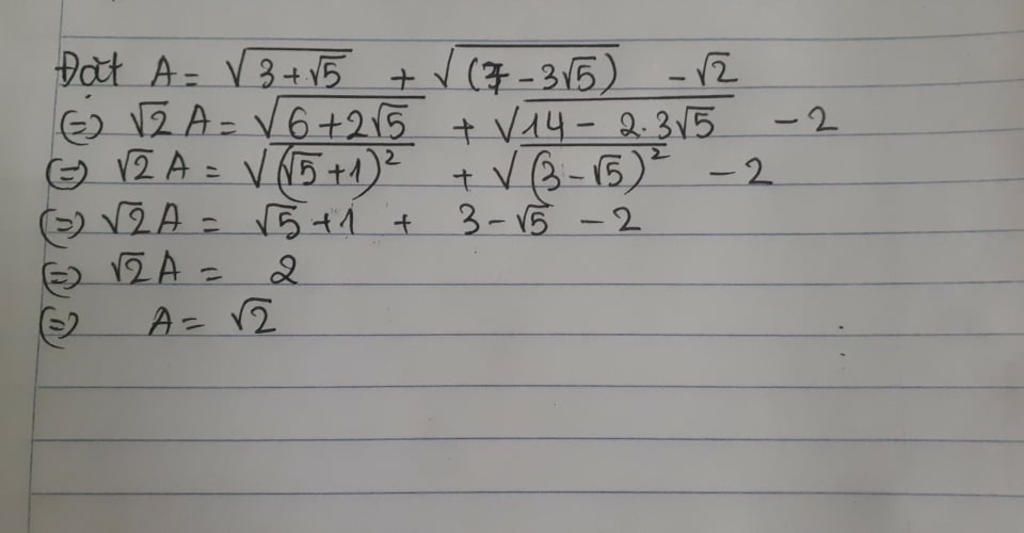 Đặt A = √(3+√5) + √((7-3√5)) - √2
(=) √2 A = √(6+2√5) + √(14-2.3√5) - 2
(=) √2 A = √((√5+1)²) + √((3-√5)²) - 2
(=) √2 A = √5+1 + 3-√5 - 2
(=) √2 A = 2
(=) A = √2